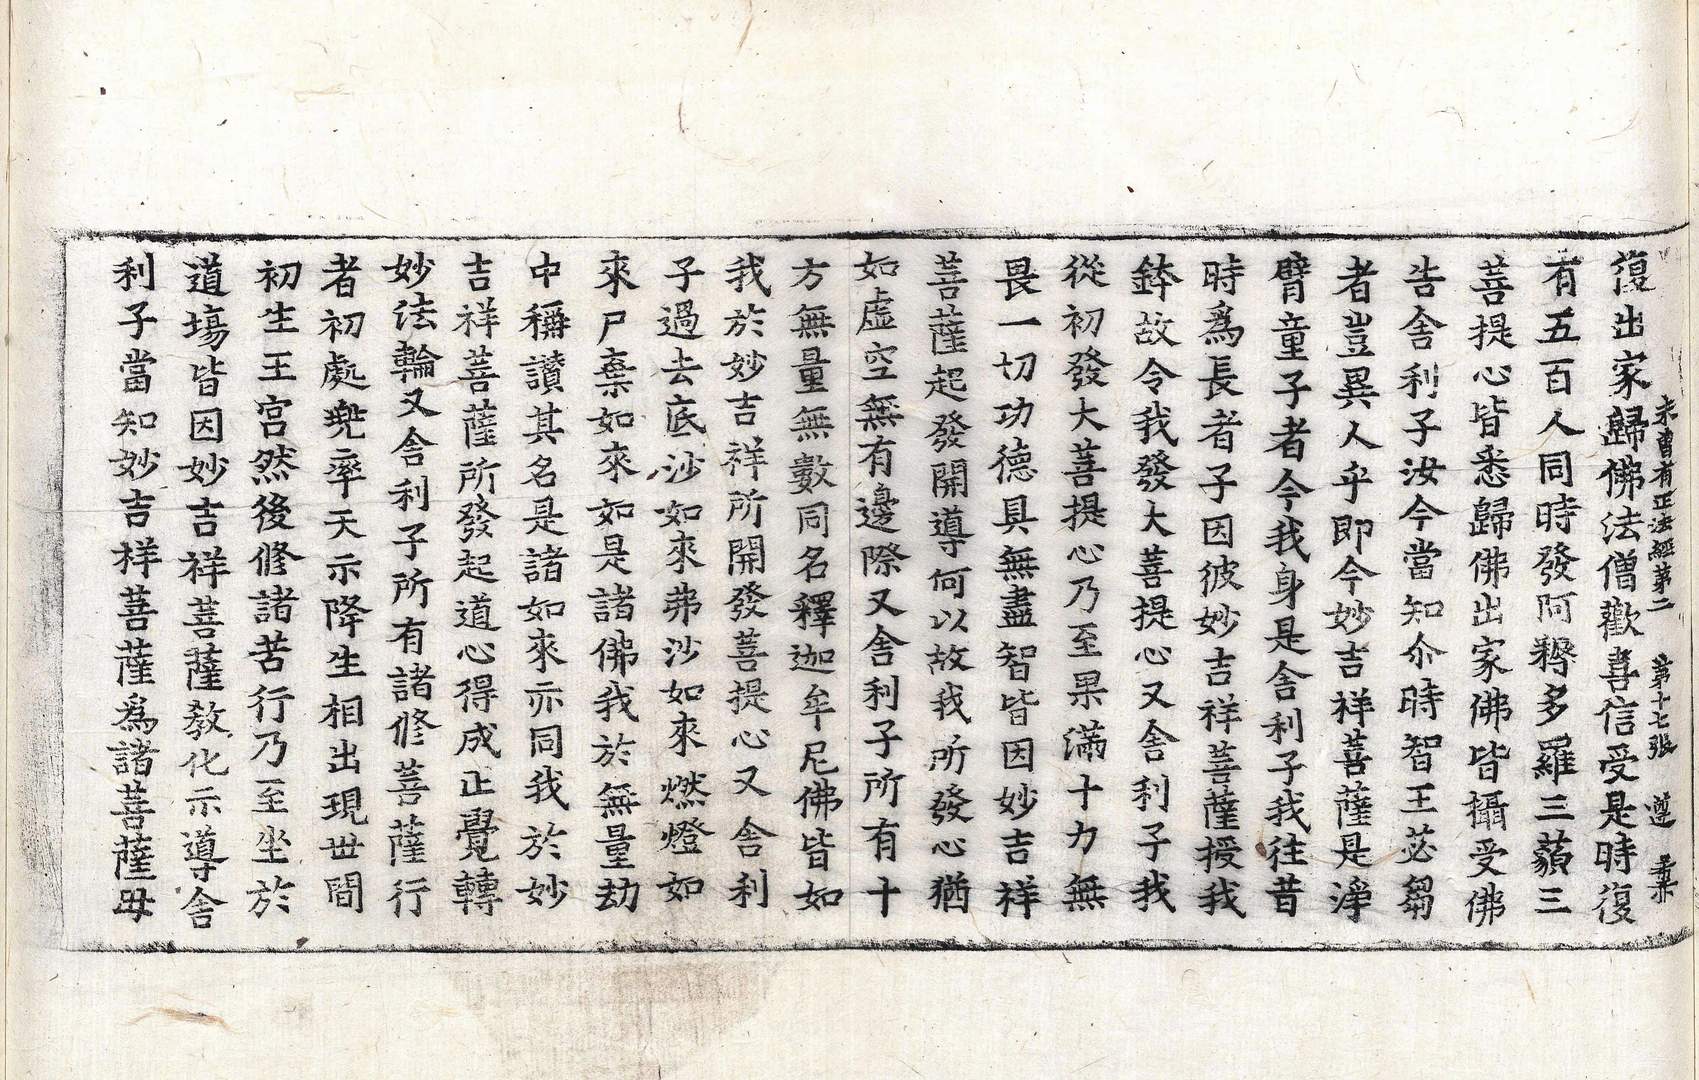 復出家歸佛法僧歡喜信受是時復
未曾有正法經第二 第十七張 遵
有五百人同時發阿耨多羅三藐三
菩提心皆悉歸佛出家佛皆攝受佛
告舍利子汝今當知尒時智王苾芻
者豈異人乎即今妙吉祥菩薩是淨
臂童子者今我身是舍利子我往昔
時爲長者子因彼妙吉祥菩薩授我
鉢故令我發大菩提心又舍利子我
從初發大菩提心乃至果滿十力無
畏一切功德具無盡智皆因妙吉祥
菩薩起發開導何以故我所發心猶
如虛空無有邊際又舍利子所有十
方無量無數同名釋迦牟尼佛皆如
我於妙吉祥所開發菩提心又舍利
子過去底沙如來弗沙如來燃燈如
來尸棄如來如是諸佛我於無量劫
中稱讃其名是諸如來亦同我於妙
吉祥菩薩所發起道心得成正覺轉
妙法輪又舍利子所有諸修菩薩行
者初處兠率天示降生相出現世間
初生王宫然後修諸苦行乃至坐於
道場皆因妙吉祥菩薩教化示導舍
利子當知妙吉祥菩薩爲諸菩薩母